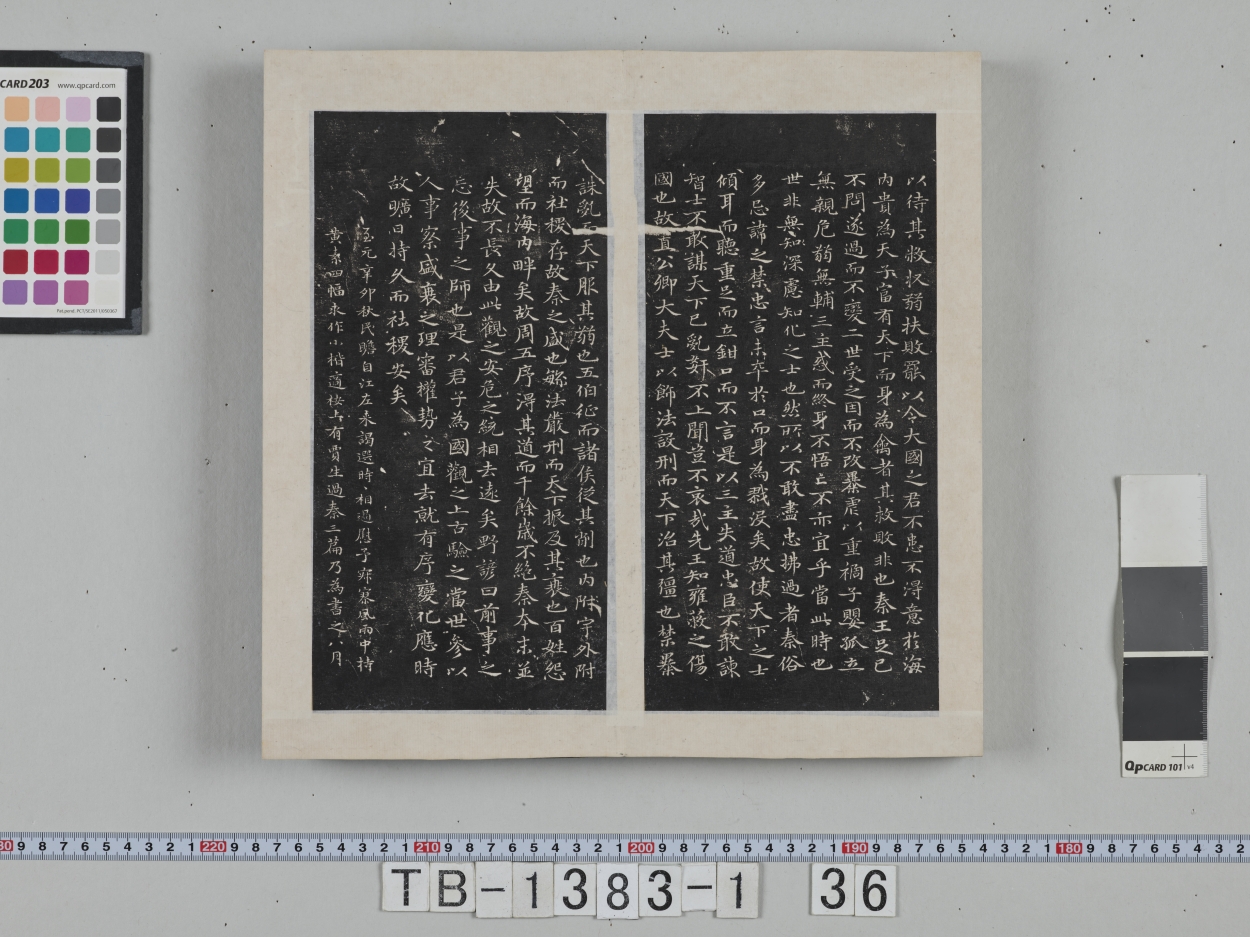 以待其救収弱扶敗罷以令大國之君不患不得意於海
内貴為天子富有天下而身為禽者其救敗非也秦王足已
不問遂過而不變二世受之因而不改暴虐以重禍子嬰孤立
無親危弱無輔三主惑而終身不悟亡不亦宜乎當此時也
世非無知深慮知化之士也然所以不敢盡忠拂過者秦俗
多忌諱之禁忠言未卒於口而身為戮没矣故使天下之士
傾耳而聽重足而立鉗口而不言是以三主失道忠臣不敢諫
智士不敢謀天下已亂姧不上聞豈不哀哉先王知雍蔽之傷
國也故置公卿大夫士以飾法設刑而天下治其彊也禁暴
誅亂而天下服其弱也五伯征而諸侯從其削也内附宇外附
而社稷存故秦之盛也繁法嚴刑而天下振及其衰也百姓怨
望而海内畔矣故周五序得其道而千餘歲不絶秦本末並
失故不長久由此觀之安危之統相去遠矣野諺曰前事之
忘後事之師也是以君子為國觀之上古驗之當世參以
人事察盛衰之理審權勢之宜去就有序變化應時
故曠日持久而社稷安矣
至元辛卯秋民瞻自江左來謁選時相過慰予寂寥風雨中持
黄素四幅求作小楷適按上有賈生過秦三篇乃為書之八月
CARD 203 www.qpcard.com
QpCARD 101 v4
30 9 8 7 6 5 4 3 2 1 220 9 8 7 6 5 4 3 2 1 210 9 8 7 6 5 4 3 2 1 200 9 8 7 6 5 4 3 2 1 190 9 8 7 6 5 4 3 2 1 180 9 8 7 6 5 4 3 2
TB-1383-1 36